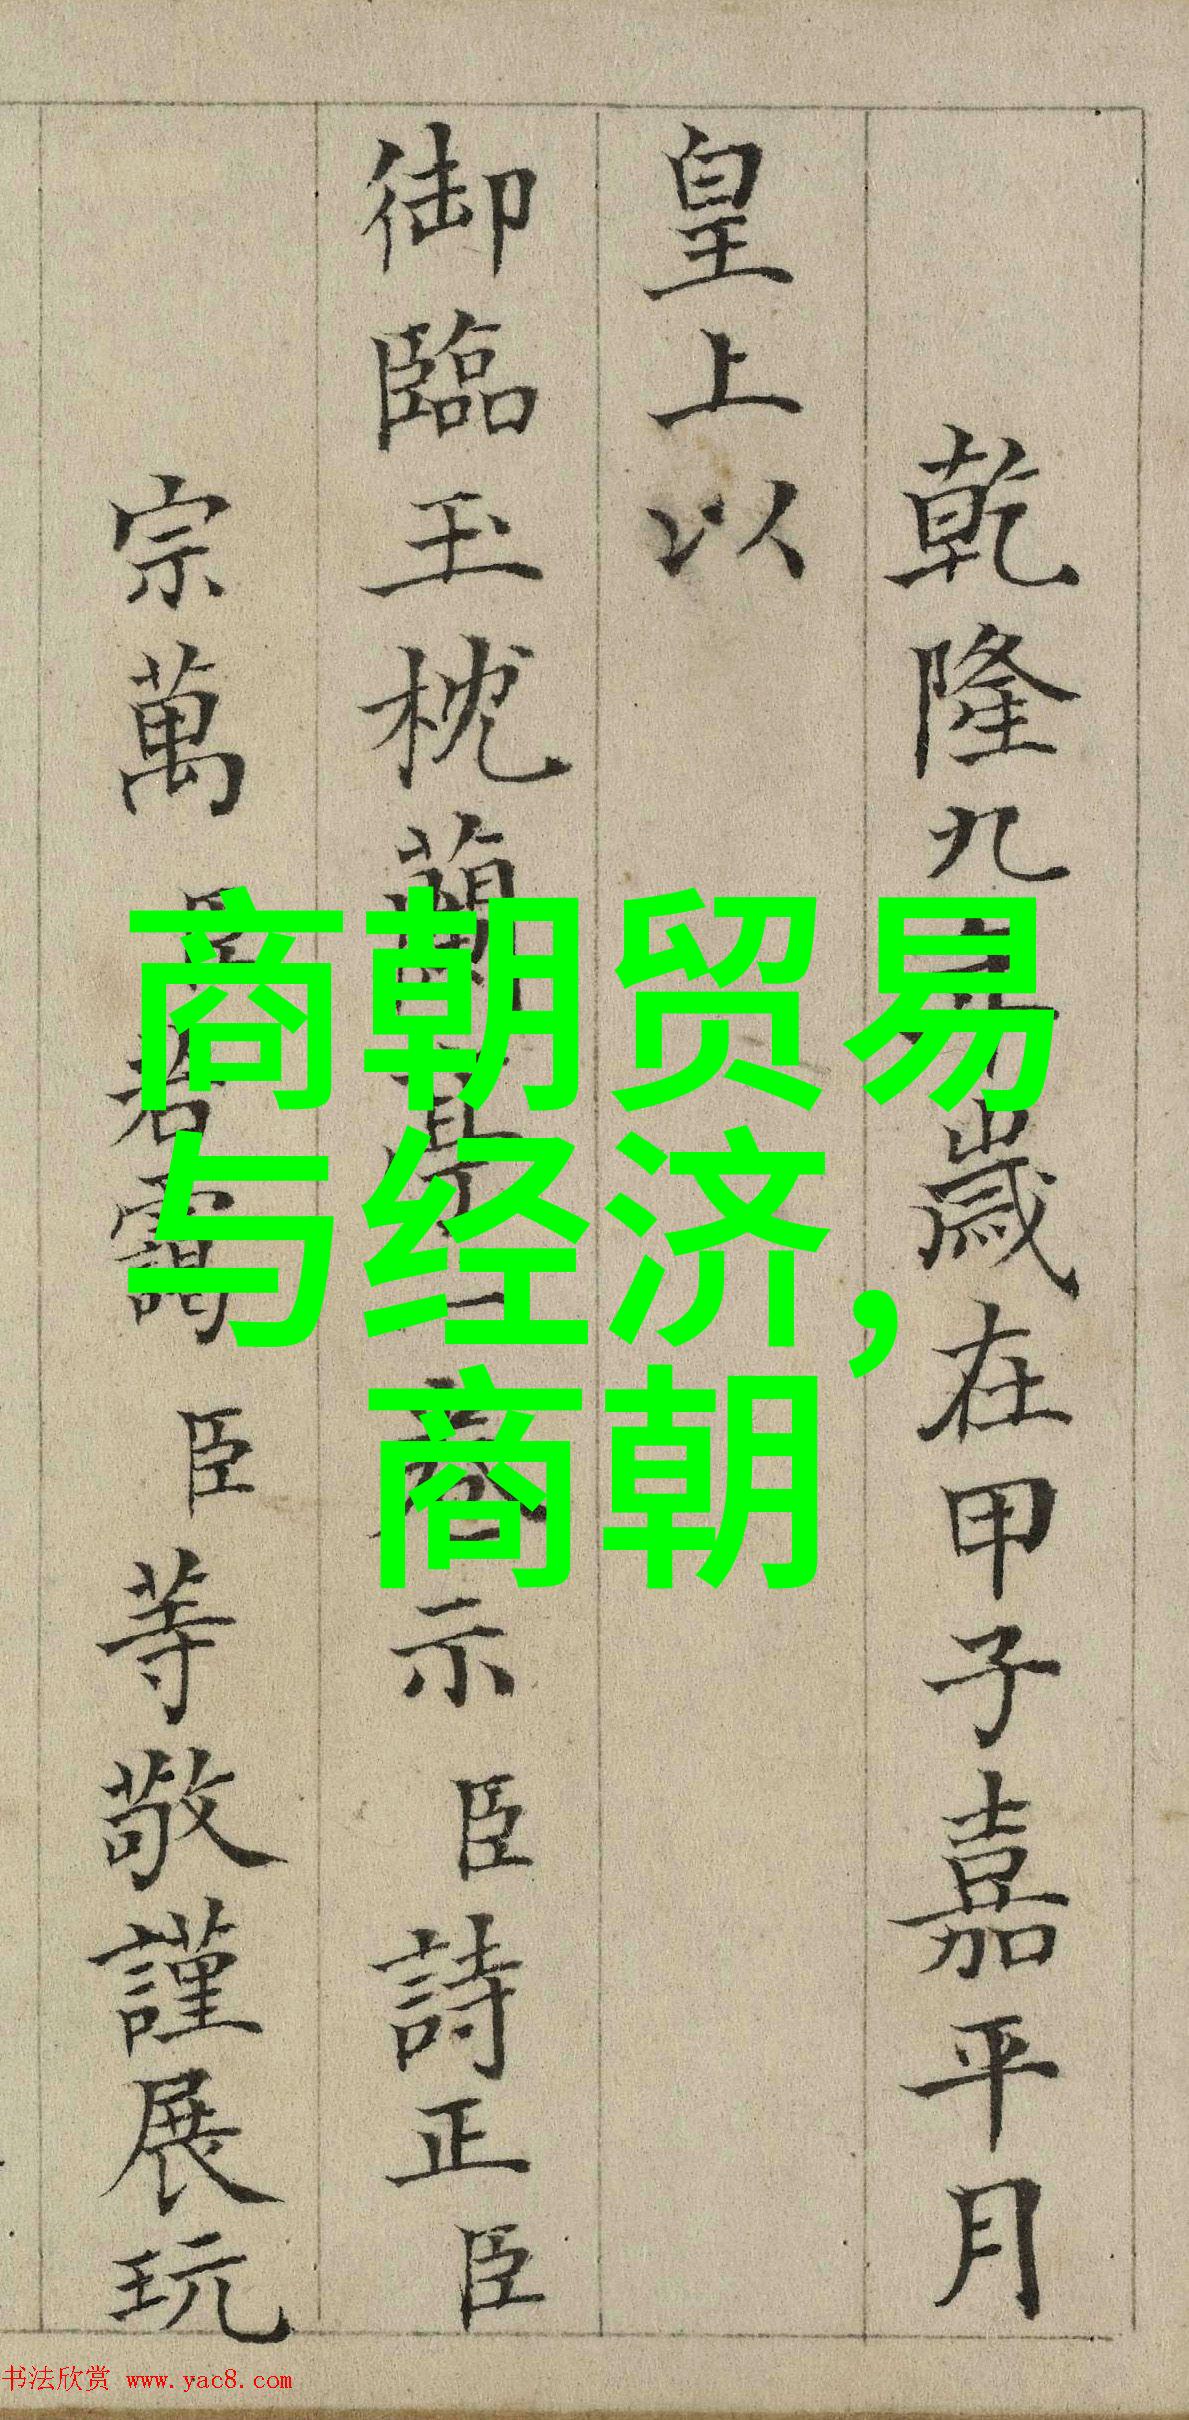 乾隆九年歲在甲子嘉平月
皇上以
御臨玉枕蘭亭一卷示臣詩正臣
宗萬臣若靄臣等敬謹展玩
商朝贸易
与经济，
商朝
书法欣赏 www.yac8.com